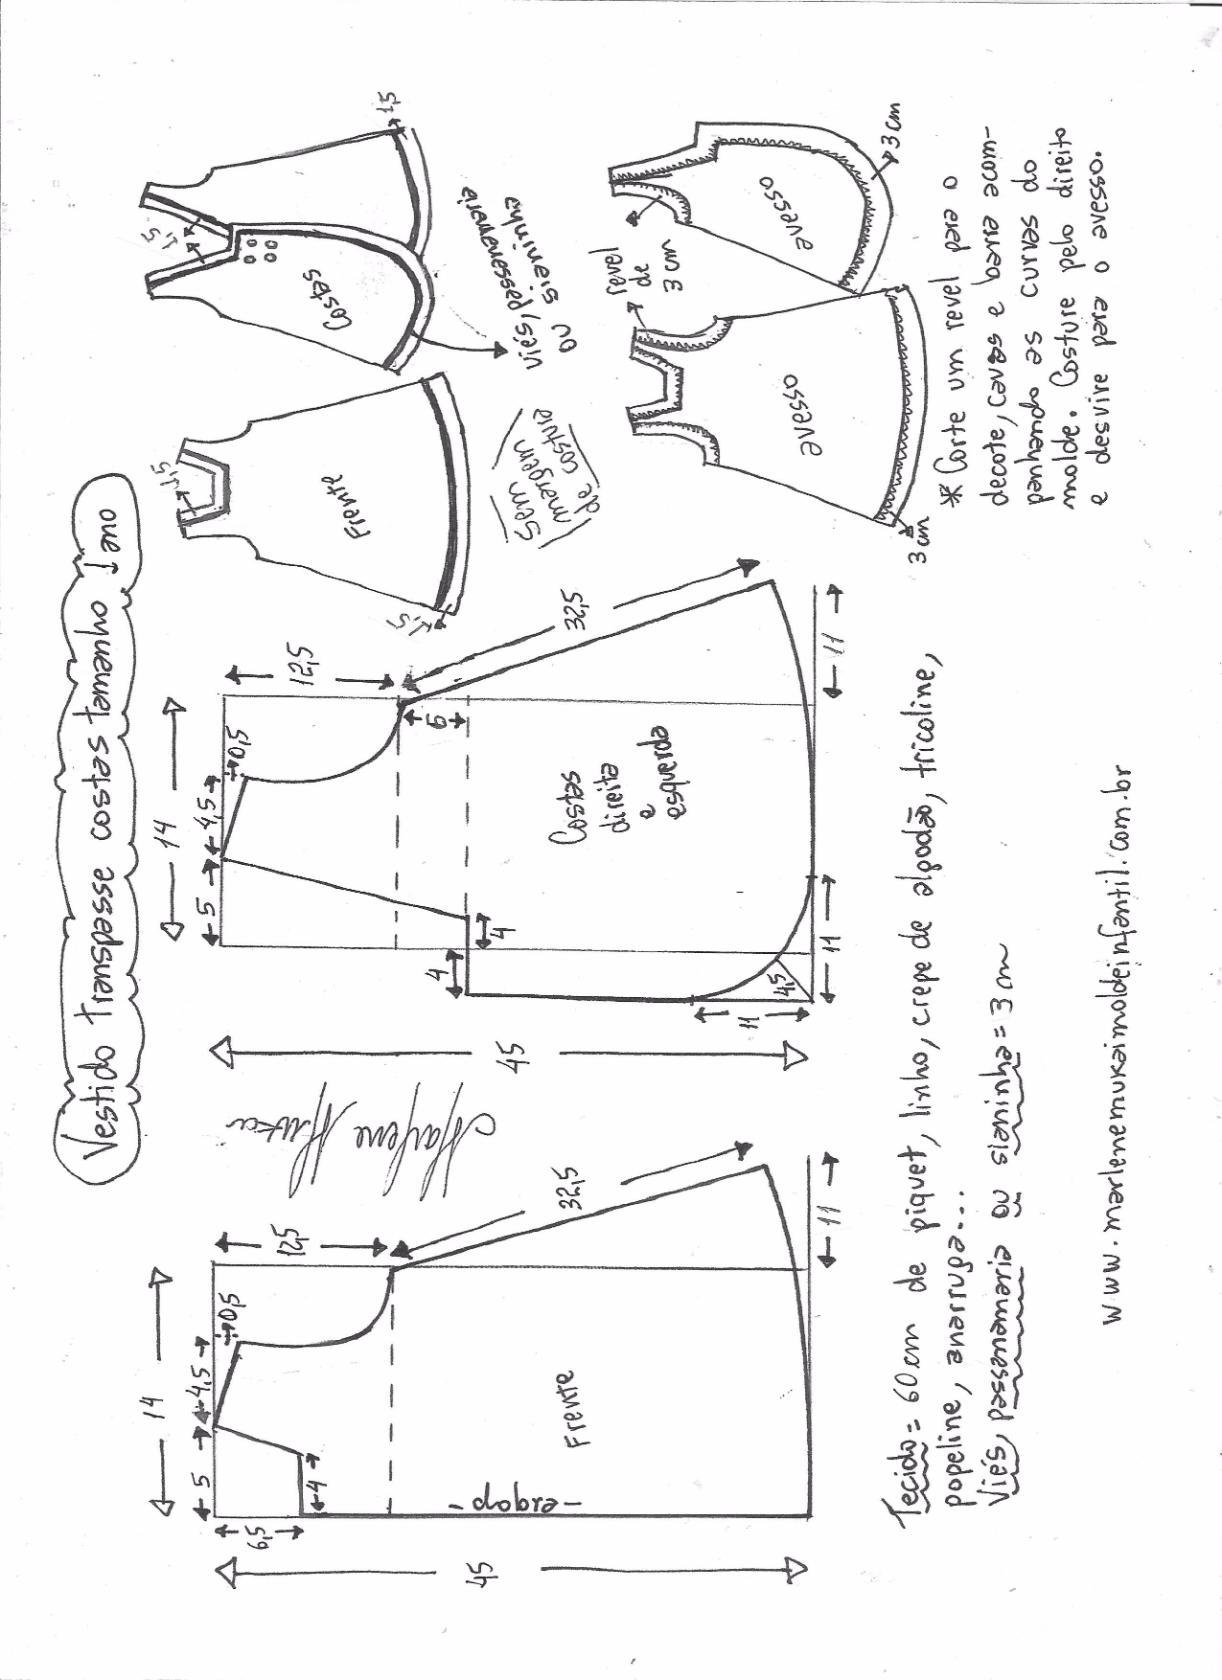 Vestido transpasse costas tamanho 1 ano
14
5
4,5
0,5
12,5
6,5
4
32,5
- dobra -
Frente
45
11
14
5
4,5
0,5
12,5
6
4
4
32,5
Costas
direita
e
esquerda
45
11
4,5
11
11
1,5
Frente
1,5
1,5
Costas
1,5
viés/passamanaria
ou sianinha
Sem
margem
de costura
revel
de
3 cm
avesso
avesso
3 cm
3 cm
* Corte um revel para o
decote, cavas e barra acom-
panhando as curvas do
molde. Costure pelo direito
e desvire para o avesso.
Tecido = 60 cm de piquet, linho, crepe de algodão, tricoline,
popeline, anarruga...
Viés, passamanaria ou sianinha = 3 cm
www.marlenemukaimoldeinfantil.com.br